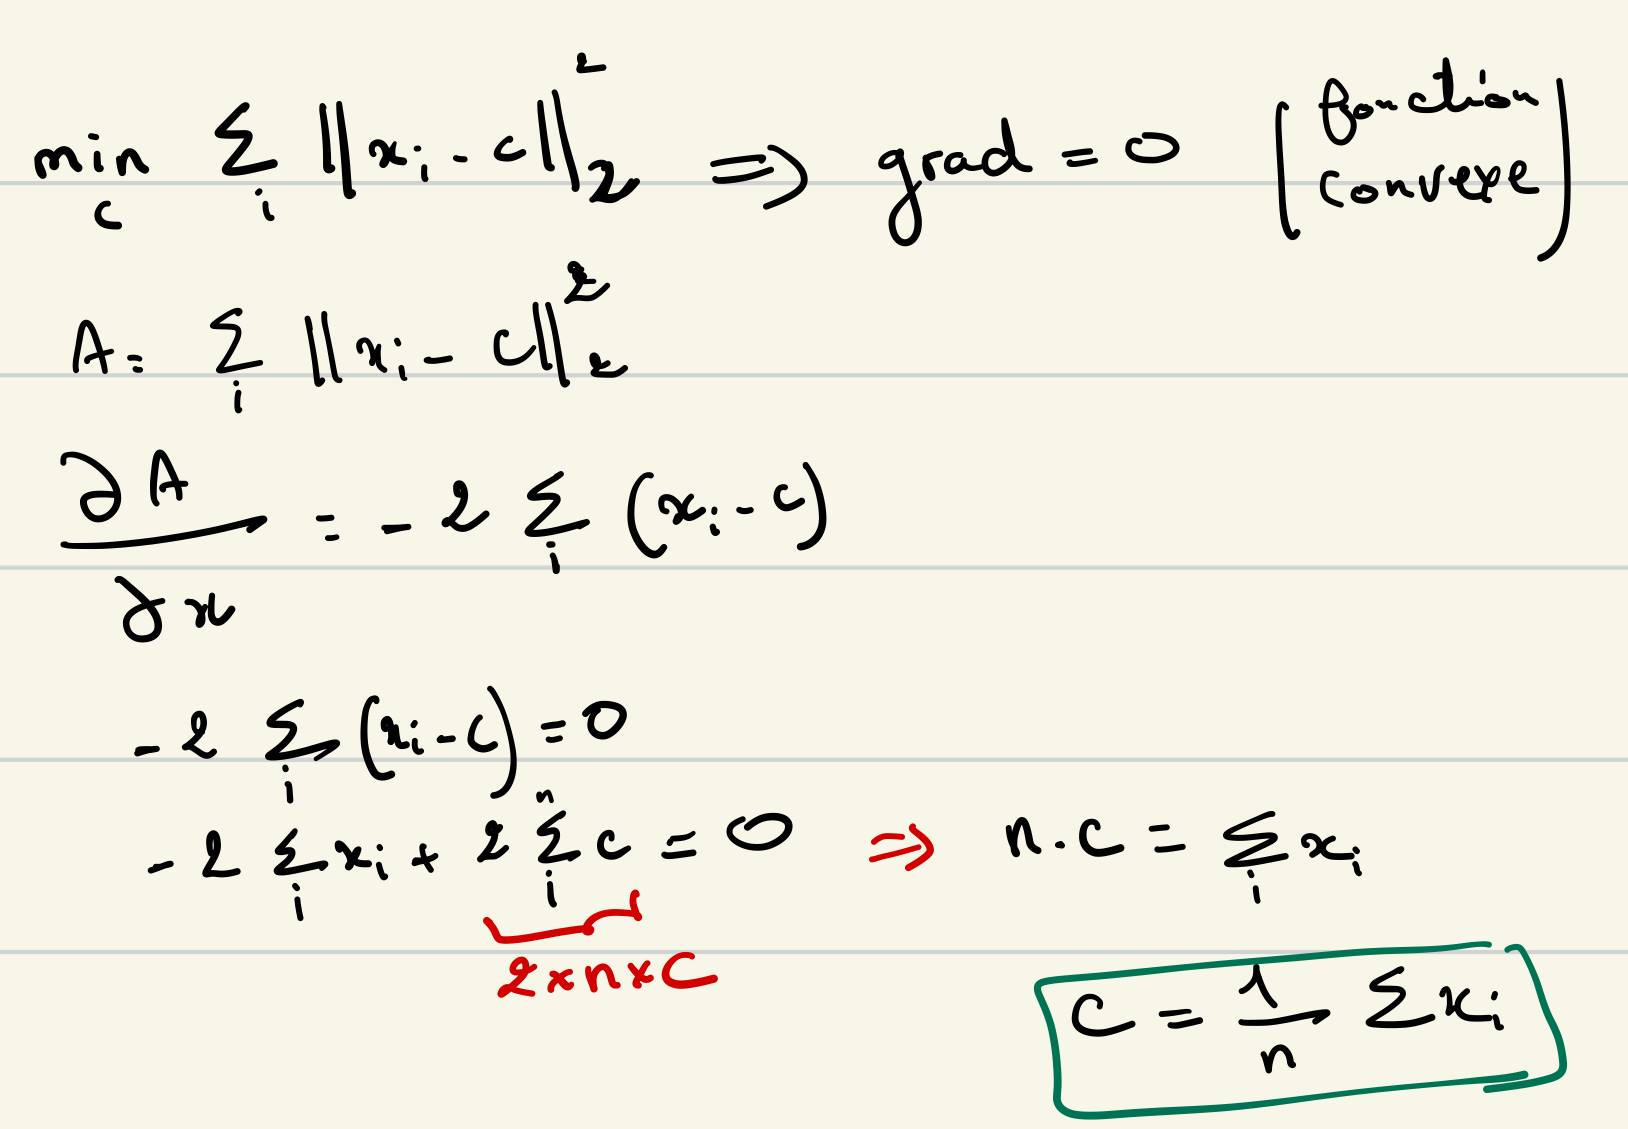 min_c Σ_i ||x_i - c||_2^2 ⇒ grad = 0 (fonction convexe)
A = Σ_i ||x_i - c||_2^2
∂A/∂x = -2 Σ_i (x_i - c)
-2 Σ_i (x_i - c) = 0
-2 Σ_i x_i + 2 Σ_i^n c = 0 ⇒ n.c = Σ_i x_i
2×n×c
c = 1/n Σ x_i